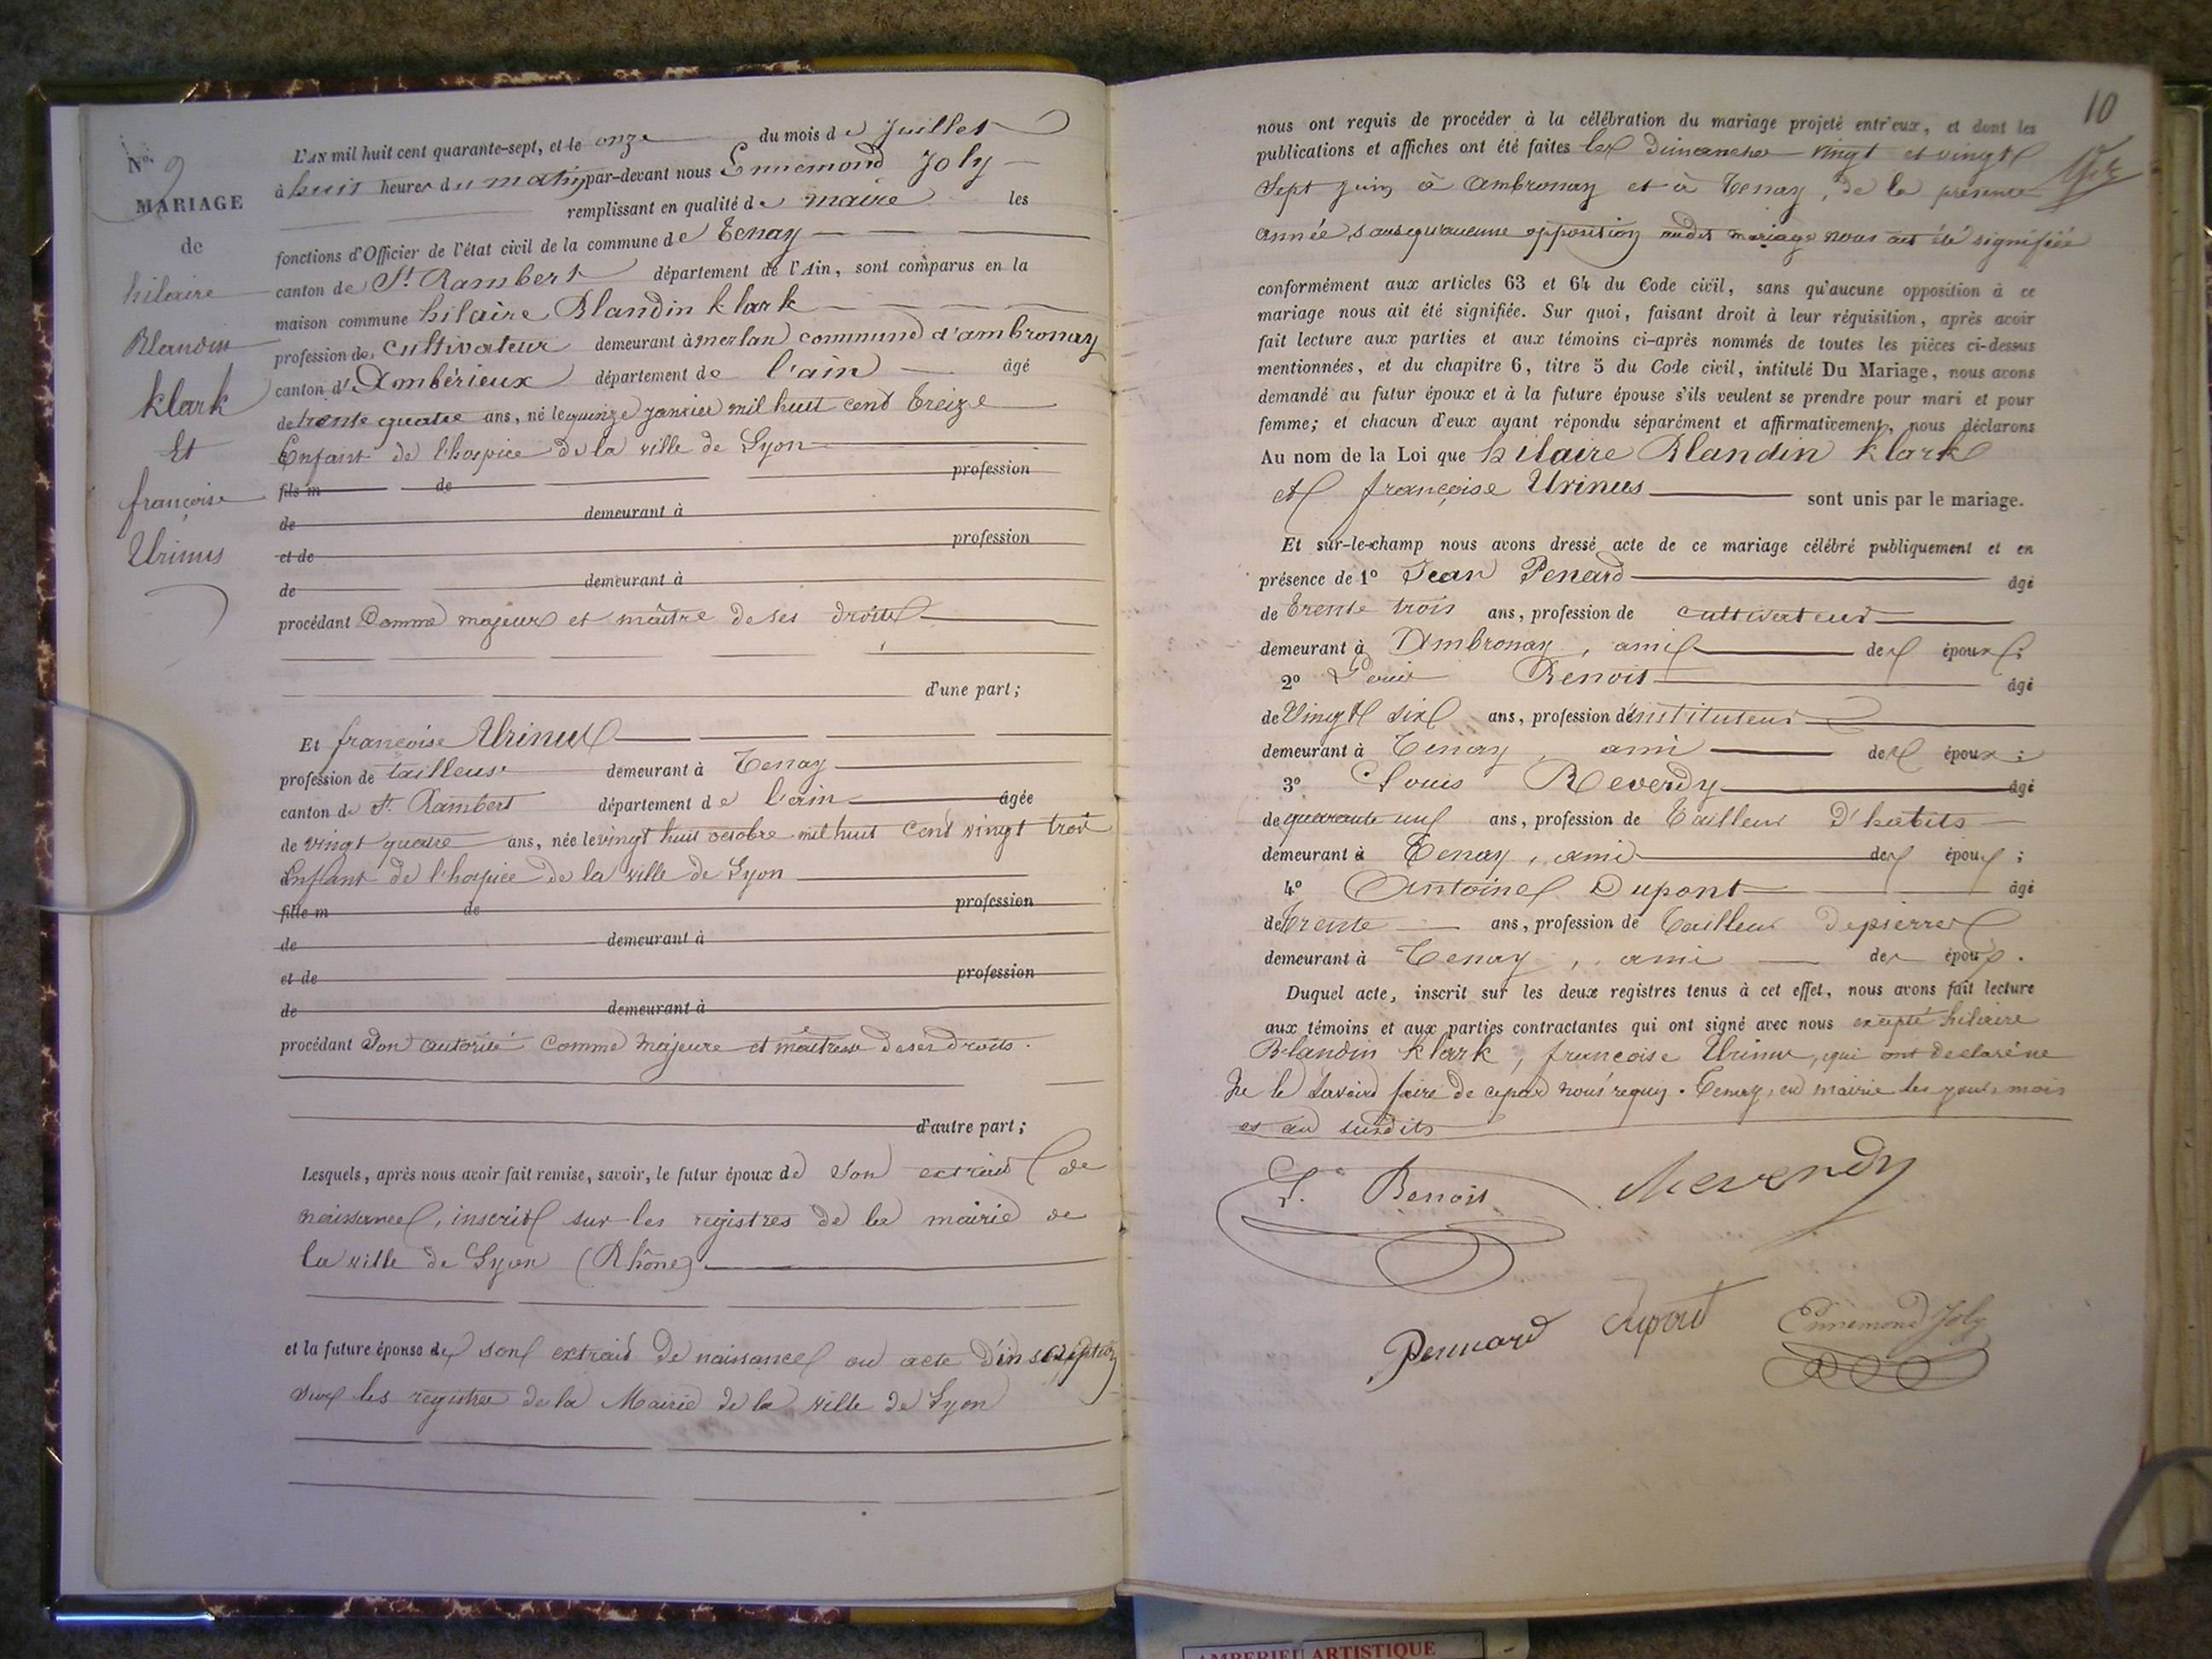 N° 9
MARIAGE
de
hilaire
Blandin
klark
Et
françoise
Urinus
L'AN mil huit cent quarante-sept, et le onze du mois de Juillet
à huit heures du matin, par-devant nous Ennemond Joly
remplissant en qualité de maire les
fonctions d'Officier de l'état civil de la commune de Tenay
canton de St. Rambert département de l'Ain, sont comparus en la
maison commune hilaire Blandin klark
profession de cultivateur demeurant à merlan commune d'ambronay
canton d'Ambérieux département de l'ain âgé
de trente quatre ans, né le quinze janvier mil huit cent treize
Enfant de l'hospice de la ville de Lyon
fils m de profession
de demeurant à
et de profession
de demeurant à
procédant Comme majeur et maître de ses droits
d'une part;
Et françoise Urinus
profession de tailleuse demeurant à Tenay
canton de St. Rambert département de l'ain âgée
de vingt quatre ans, née le vingt huit octobre mil huit cent vingt trois
Enfant de l'hospice de la ville de Lyon
fille m de profession
de demeurant à
et de profession
de demeurant à
procédant Son autorité comme majeure et maîtresse de ses droits.
d'autre part;
Lesquels, après nous avoir fait remise, savoir, le futur époux de son extrait de
naissance, inscrit sur les registres de la mairie de
la ville de Lyon (Rhône)
et la future épouse de son extrait de naissance ou acte d'inscription
sur les registres de la Mairie de la ville de Lyon
10
nous ont requis de procéder à la célébration du mariage projeté entr'eux, et dont les
publications et affiches ont été faites les dimanches vingt et vingt
Sept juin à Ambronay et à Tenay, de la présente
année, sans qu'aucune opposition audit mariage nous ait été signifiée
conformément aux articles 63 et 64 du Code civil, sans qu'aucune opposition à ce
mariage nous ait été signifiée. Sur quoi, faisant droit à leur réquisition, après avoir
fait lecture aux parties et aux témoins ci-après nommés de toutes les pièces ci-dessus
mentionnées, et du chapitre 6, titre 5 du Code civil, intitulé Du Mariage, nous avons
demandé au futur époux et à la future épouse s'ils veulent se prendre pour mari et pour
femme; et chacun d'eux ayant répondu séparément et affirmativement, nous déclarons
Au nom de la Loi que hilaire Blandin klark
et françoise Urinus sont unis par le mariage.
Et sur-le-champ nous avons dressé acte de ce mariage célébré publiquement et en
présence de 1° Jean Penard âgé
de trente trois ans, profession de cultivateur
demeurant à Ambronay, ami des époux;
2° Benoit âgé
de Vingt six ans, profession d'instituteur
demeurant à Tenay, ami des époux;
3° Louis Reverdy âgé
de quarante un ans, profession de Tailleur D'habits
demeurant à Tenay, ami des époux;
4° Antoine Dupont âgé
de trente ans, profession de Tailleur de pierres
demeurant à Tenay, ami des époux.
Duquel acte, inscrit sur les deux registres tenus à cet effet, nous avons fait lecture
aux témoins et aux parties contractantes qui ont signé avec nous excepté hilaire
Blandin klark, françoise Urinus, qui ont déclaré ne
le savoir faire de ce par nous requis. Tenay, en mairie les jour, mois
et an susdits
Benoit Reverdy
Pennard Dupont Ennemond Joly
AMBERIEU ARTISTIQUE